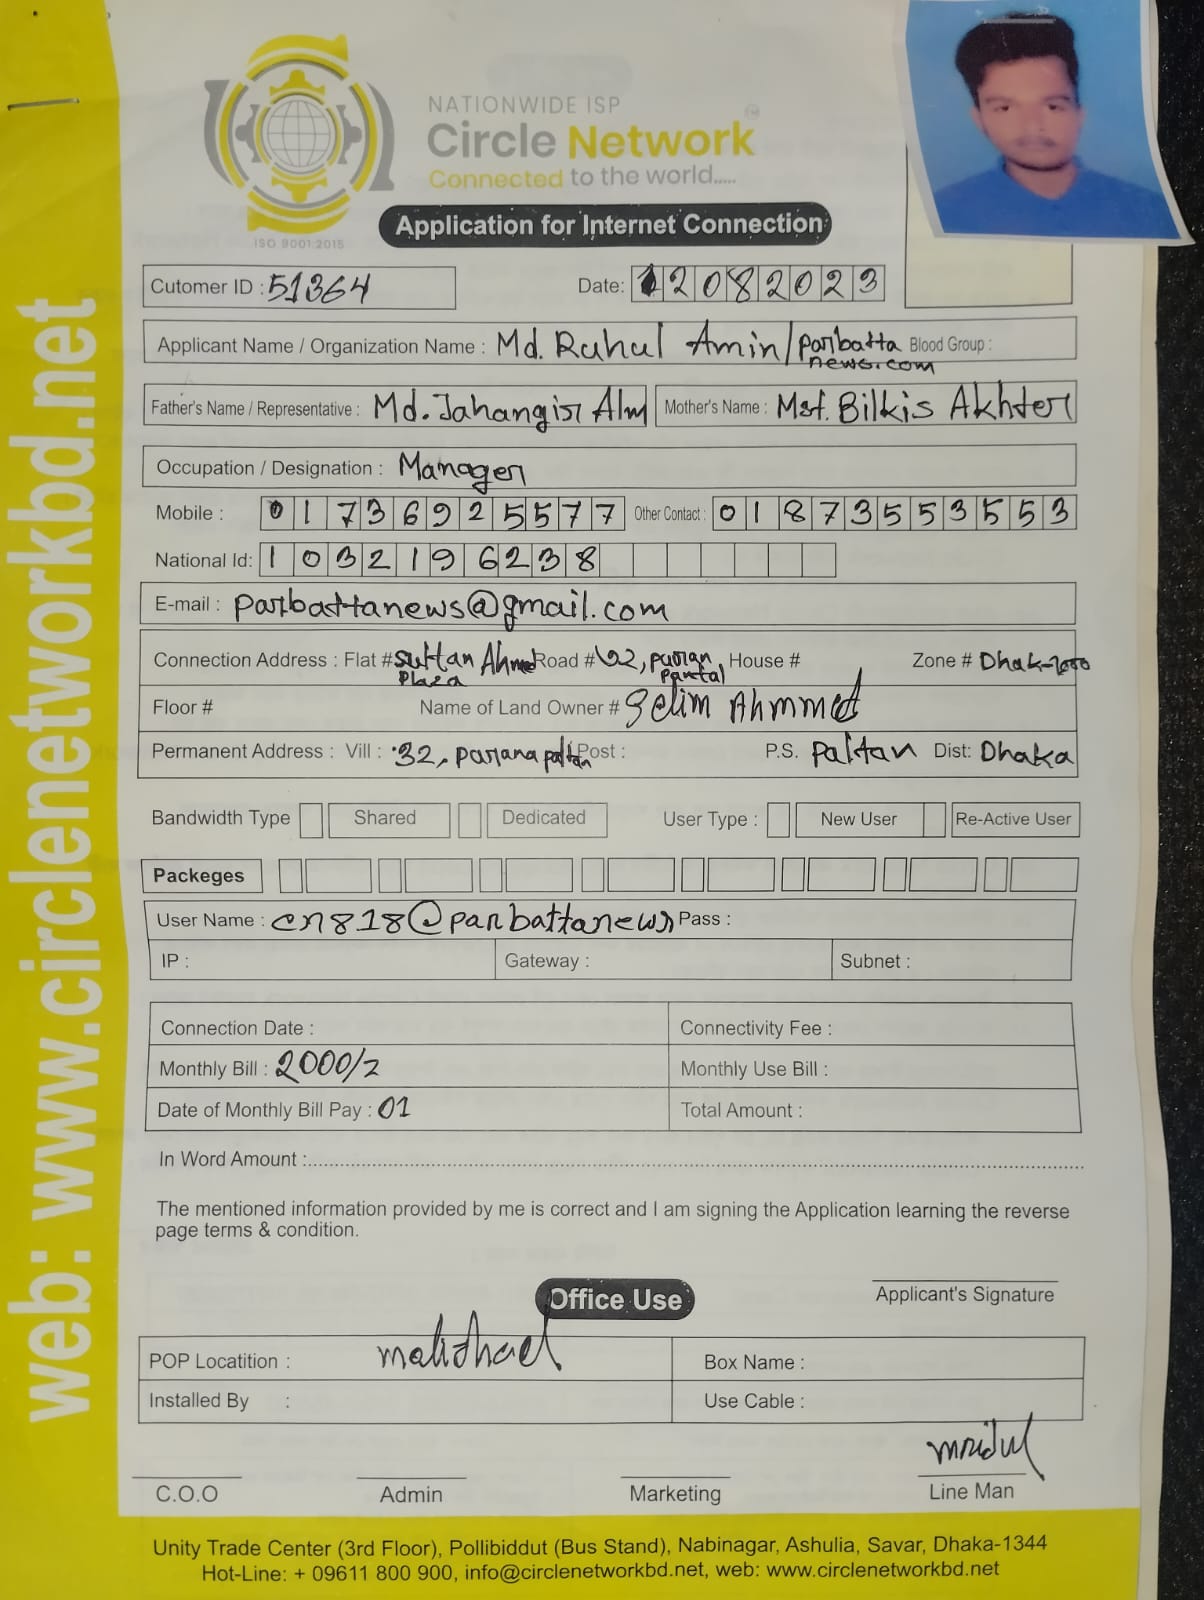 NATIONWIDE ISP
Circle Network
Connected to the world.....
ISO 9001:2015
Application for Internet Connection
Cutomer ID : 51364 Date: 12082023
Applicant Name / Organization Name : Md. Ruhul Amin / Parbatta Blood Group :
news.com
Father's Name / Representative : Md. Jahangir Alm Mother's Name : Mst. Bilkis Akhter
Occupation / Designation : Manager
Mobile : 01736925577 Other Contact : 01873553553
National Id: 1032196238
E-mail : parbattanews@gmail.com
Connection Address : Flat # Sultan Ahmed Road # House # Zone # Dhak-1000
Plaza
Floor # Name of Land Owner # Selim Ahmmed
Permanent Address : Vill : 32, Purana paltan Post : P.S. Paltan Dist: Dhaka
Bandwidth Type Shared Dedicated User Type : New User Re-Active User
Packeges
User Name : cn818@parbattanews Pass :
IP : Gateway : Subnet :
Connection Date : Connectivity Fee :
Monthly Bill : 2000/= Monthly Use Bill :
Date of Monthly Bill Pay : 01 Total Amount :
In Word Amount :
The mentioned information provided by me is correct and I am signing the Application learning the reverse
page terms & condition.
Applicant's Signature
Office Use
POP Locatition : Box Name :
Installed By : Use Cable :
mridul
C.O.O Admin Marketing Line Man
Unity Trade Center (3rd Floor), Pollibiddut (Bus Stand), Nabinagar, Ashulia, Savar, Dhaka-1344
Hot-Line: + 09611 800 900, info@circlenetworkbd.net, web: www.circlenetworkbd.net
web: www.circlenetworkbd.net